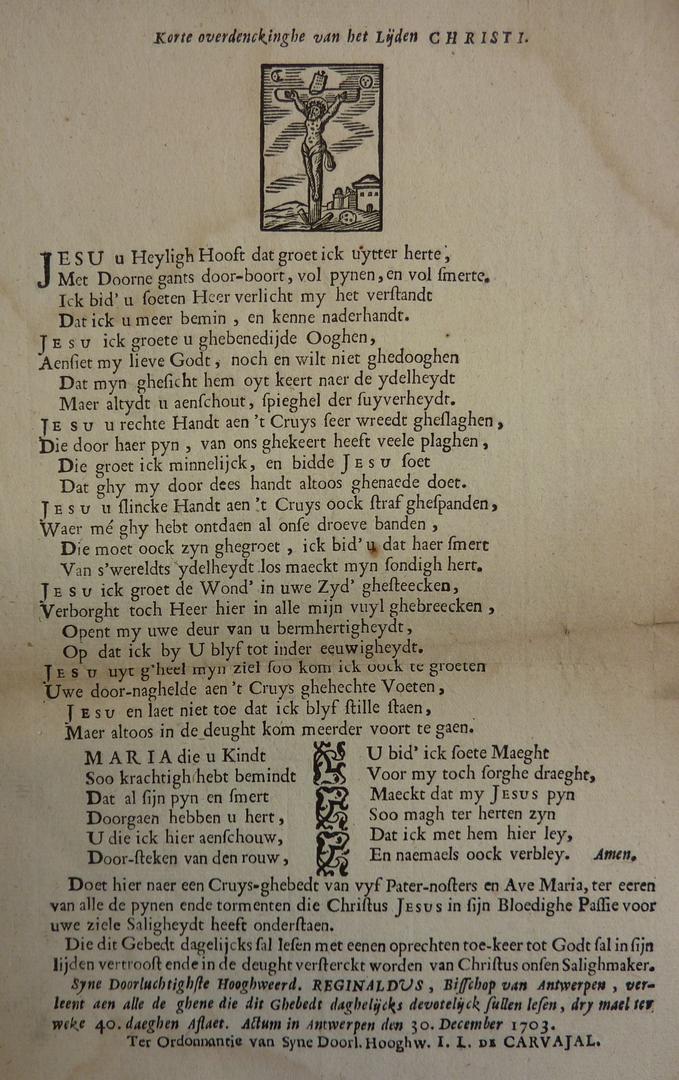 Korte overdenckinghe van het Lijden CHRISTI.
JESU u Heyligh Hooft dat groet ick uytter herte,
Met Doorne gants door-boort, vol pynen, en vol ſmerte.
Ick bid' u ſoeten Heer verlicht my het verſtandt
Dat ick u meer bemin, en kenne naderhandt.
JESU ick groete u ghebenedijde Ooghen,
Aenſiet my lieve Godt, noch en wilt niet ghedooghen
Dat myn gheſicht hem oyt keert naer de ydelheydt
Maer altydt u aenſchout, ſpieghel der ſuyverheydt.
JESU u rechte Handt aen 't Cruys ſeer wreedt gheſlaghen,
Die door haer pyn, van ons ghekeert heeft veele plaghen,
Die groet ick minnelijck, en bidde JESU ſoet
Dat ghy my door dees handt altoos ghenaede doet.
JESU u ſlincke Handt aen 't Cruys oock ſtraf gheſpanden,
Waer mé ghy hebt ontdaen al onſe droeve banden,
Die moet oock zyn ghegroet, ick bid' u dat haer ſmert
Van s'wereldts ydelheydt los maeckt myn ſondigh hert.
JESU ick groet de Wond' in uwe Zyd' gheſteecken,
Verborght toch Heer hier in alle mijn vuyl ghebreecken,
Opent my uwe deur van u bermhertigheydt,
Op dat ick by U blyf tot inder eeuwigheydt.
JESU uyt g'heel myn ziel ſoo kom ick oock te groeten
Uwe door-naghelde aen 't Cruys ghehechte Voeten,
JESU en laet niet toe dat ick blyf ſtille ſtaen,
Maer altoos in de deught kom meerder voort te gaen.
MARIA die u Kindt
Soo krachtigh hebt bemindt
Dat al ſijn pyn en ſmert
Doorgaen hebben u hert,
U die ick hier aenſchouw,
Door-ſteken van den rouw,
U bid' ick ſoete Maeght
Voor my toch ſorghe draeght,
Maeckt dat my JESUS pyn
Soo magh ter herten zyn
Dat ick met hem hier ley,
En naemaels oock verbley. Amen.
Doet hier naer een Cruys-ghebedt van vyf Pater-noſters en Ave Maria, ter eeren
van alle de pynen ende tormenten die Chriſtus JESUS in ſijn Bloedighe Paſſie voor
uwe ziele Saligheydt heeft onderſtaen.
Die dit Gebedt dagelijcks ſal leſen met eenen oprechten toe-keer tot Godt ſal in ſijn
lijden vertrooſt ende in de deught verſterckt worden van Chriſtus onſen Salighmaker.
Syne Doorluchtighſte Hooghweerd. REGINALDUS, Biſſchop van Antwerpen, ver-
leent aen alle de ghene die dit Ghebedt daghelijcks devotelijck ſullen leſen, dry mael ter
weke 40. daeghen Aflaet. Actum in Antwerpen den 30. December 1703.
Ter Ordonnantie van Syne Doorl. Hooghw. I. L. DE CARVAJAL.